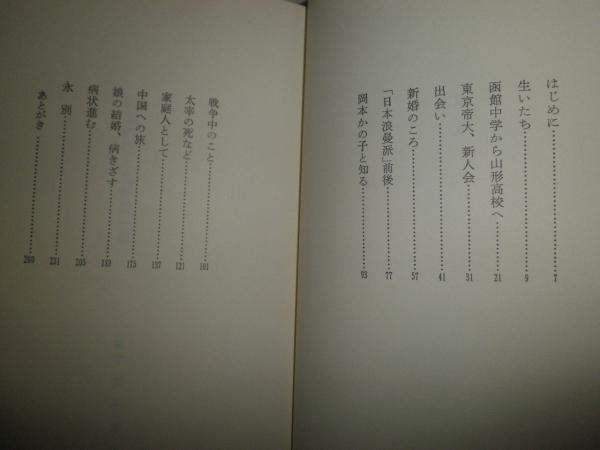 はじめに……………7
生いたち……………9
函館中学から山形高校へ……………21
東京帝大、新人会……………31
出会い……………41
新婚のころ……………57
「日本浪曼派」前後……………77
岡本かの子と知る……………93
戦争中のこと……………101
太宰の死など……………121
家庭人として……………137
中国への旅……………175
娘の結婚、病きざす……………189
病状進む……………205
永別……………231
あとがき……………260